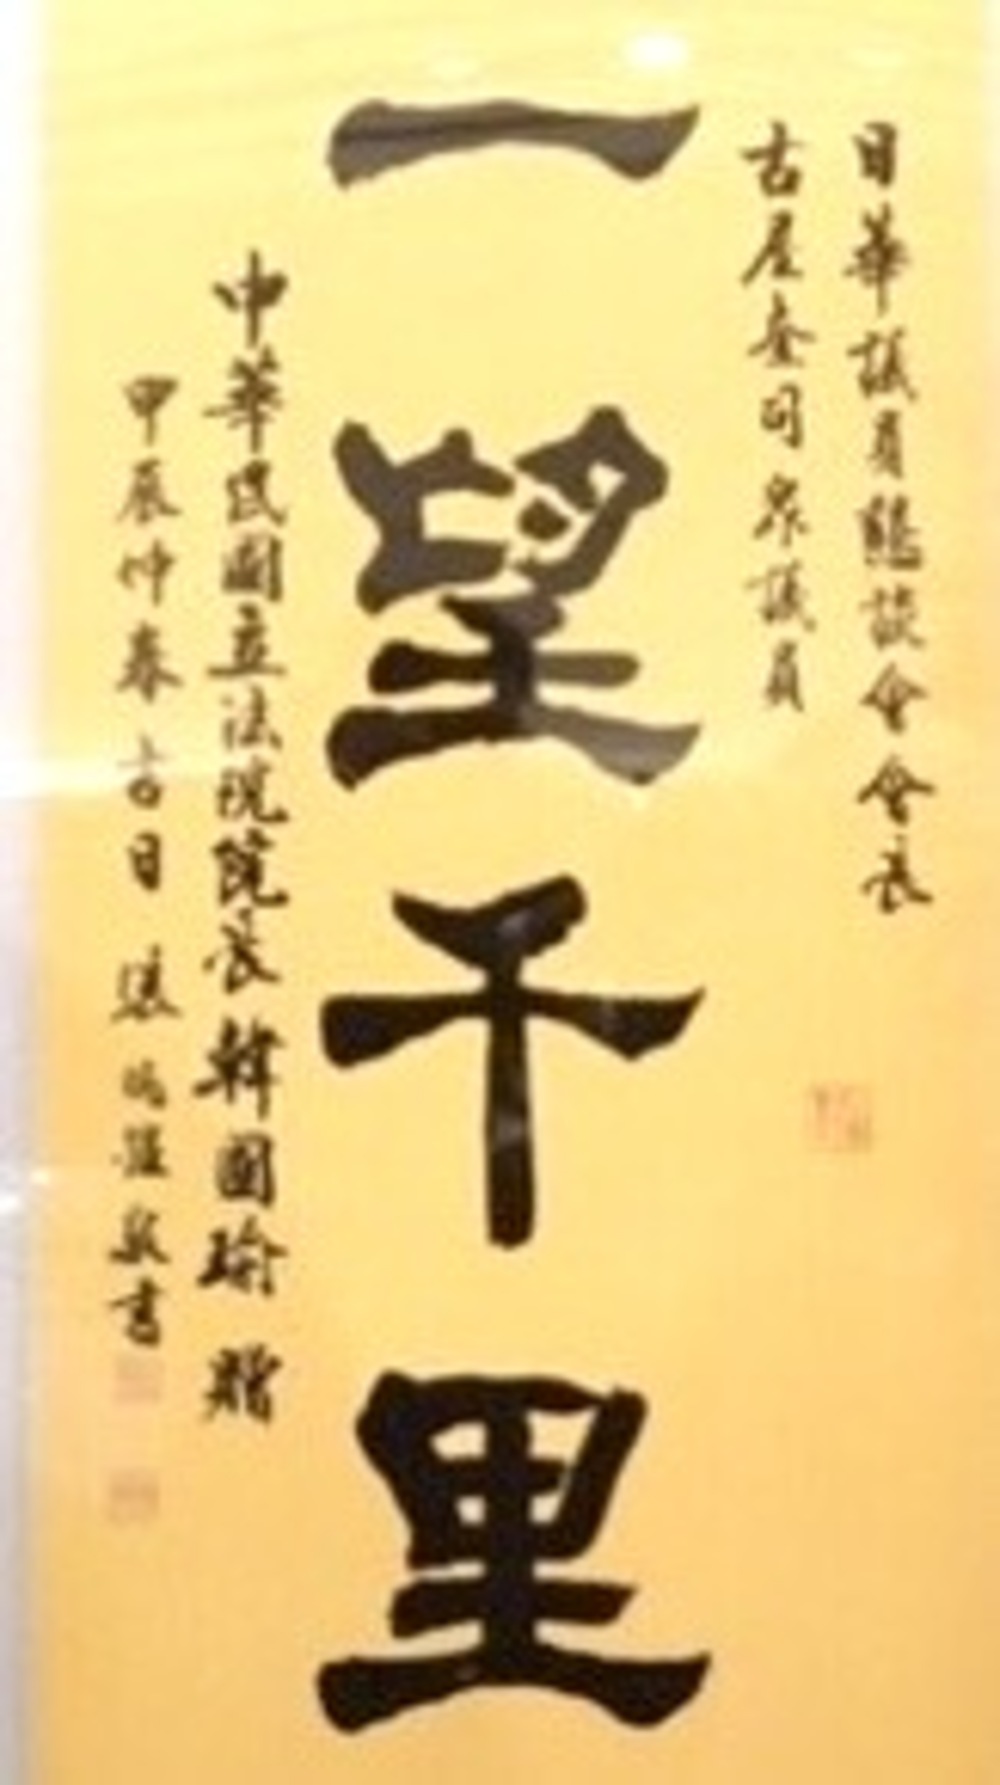 日華議員懇談會會長
古屋奎司眾議員
一望千里
中華民國立法院院長韓國瑜 贈
甲辰仲春吉日 張 書